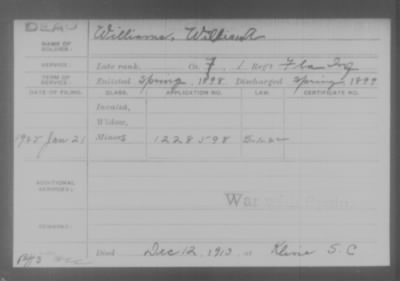 DEAD
NAME OF SOLDIER: Williams, William
SERVICE: Late rank, Co. F, 1 Reg't Fla Inf
TERM OF SERVICE: Enlisted Spring, 1898 Discharged Spring, 1899
DATE OF FILING. CLASS. APPLICATION NO. LAW. CERTIFICATE NO.
Invalid,
Widow,
1925 Jan 21 Minors 1228598
ADDITIONAL SERVICES:
War with Spain.
REMARKS:
Died Dec 12, 1913, at Kline S.C